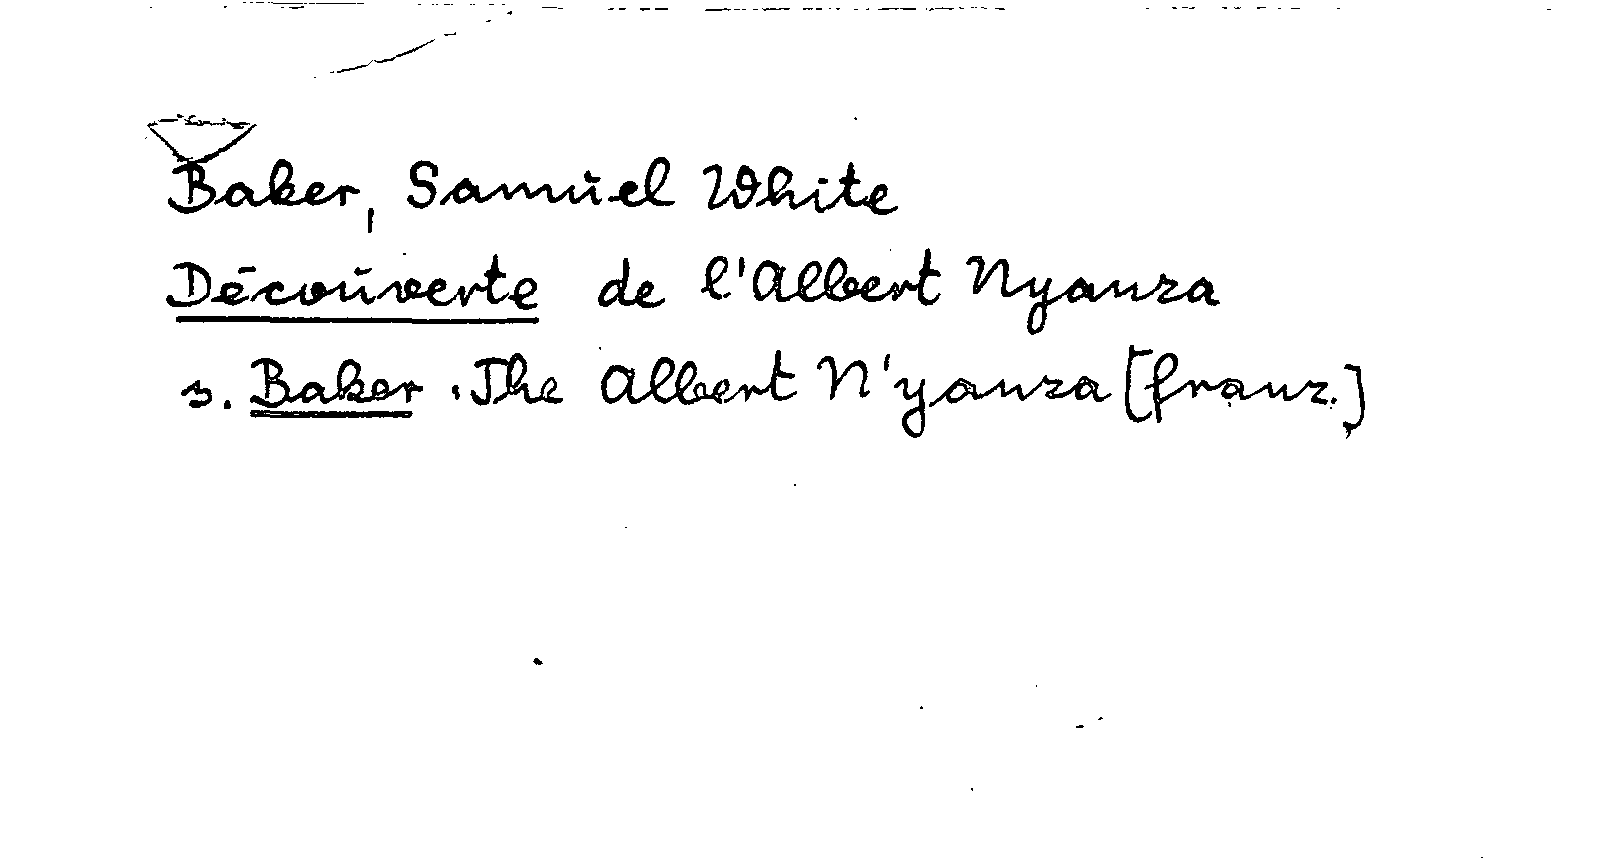 Baker, Samuel White
Découverte de l'Albert Nyanza
s. Baker. The Albert N'yanza [franz.]